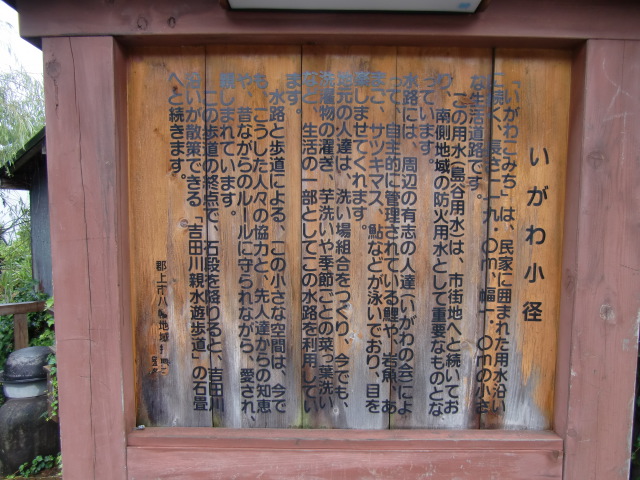 いがわ小径
「いがわこみち」は、民家に囲まれた用水沿い
に続く、長さ一一九・〇m、幅一・〇mの小さ
な生活道路です。
この用水(島谷用水)は、市街地へと続いてお
り、南側地域の防火用水として重要なものとな
っています。
水路には、周辺の有志の人達(いがわの会)によ
って、自主的に管理されている鯉や、岩魚、あ
まご、サツキマス、鮎などが泳いでおり、目を
楽しませてくれます。
地元の人達は、洗い場組合をつくり、今でも、
洗濯物の濯ぎ、芋洗いや季節ごとの菜っ葉洗い
など、生活の一部としてこの水路を利用してい
ます。
水路と歩道による、この小さな空間は、今で
も、こうした人々の協力と、先人達からの知恵
や、昔ながらのルールに守られながら、愛され、
親しまれています。
この歩道の終点で、石段を降りると、吉田川
沿いが散策できる「吉田川親水遊歩道」の石畳
へと続きます。
郡上市八幡地域